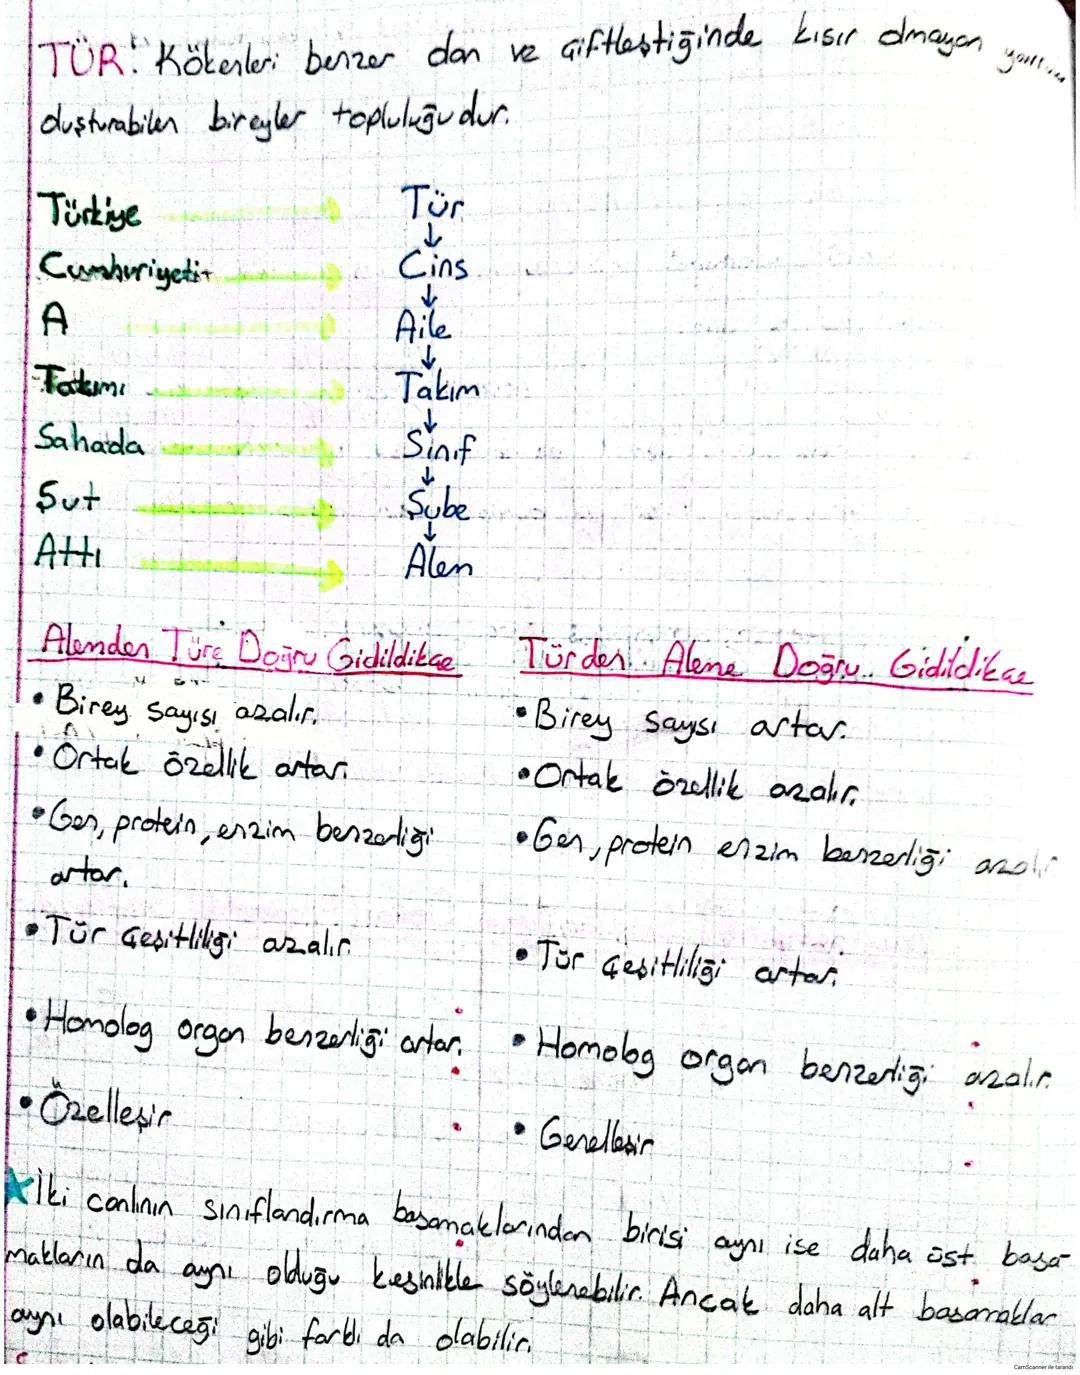 TÜR: Kökenleri benzer olan ve çiftleştiğinde kısır olmayan
oluşturabilen bireyler topluluğudur.
Türkiye → Tür
↓
Cumhuriyeti → Cins
↓
A → Aile
↓
Takımı → Takım
↓
Sahada → Sınıf
↓
Şut → Şube
↓
Attı → Alem
Alemden Türe Doğru Gidildikçe
• Birey sayısı azalır.
• Ortak özellik artar.
• Gen, protein, enzim benzerliği
artar.
• Tür çeşitliliği azalır.
• Homolog organ benzerliği artar.
• Özelleşir
Türden Aleme Doğru Gidildikçe
• Birey saysı artar.
• Ortak özellik azalır.
• Gen, protein enzim benzerliği azalır
• Tür çeşitliliği artar.
• Homolog organ benzerliği azalır.
• Genelleşir
★ İki canlının sınıflandırma basamaklarından birisi aynı ise daha üst basa-
makların da aynı olduğu kesinlikle söylenebilir. Ancak daha alt basamaklar
aynı olabileceği gibi farklı da olabilir.
CamScanner ile tarandı